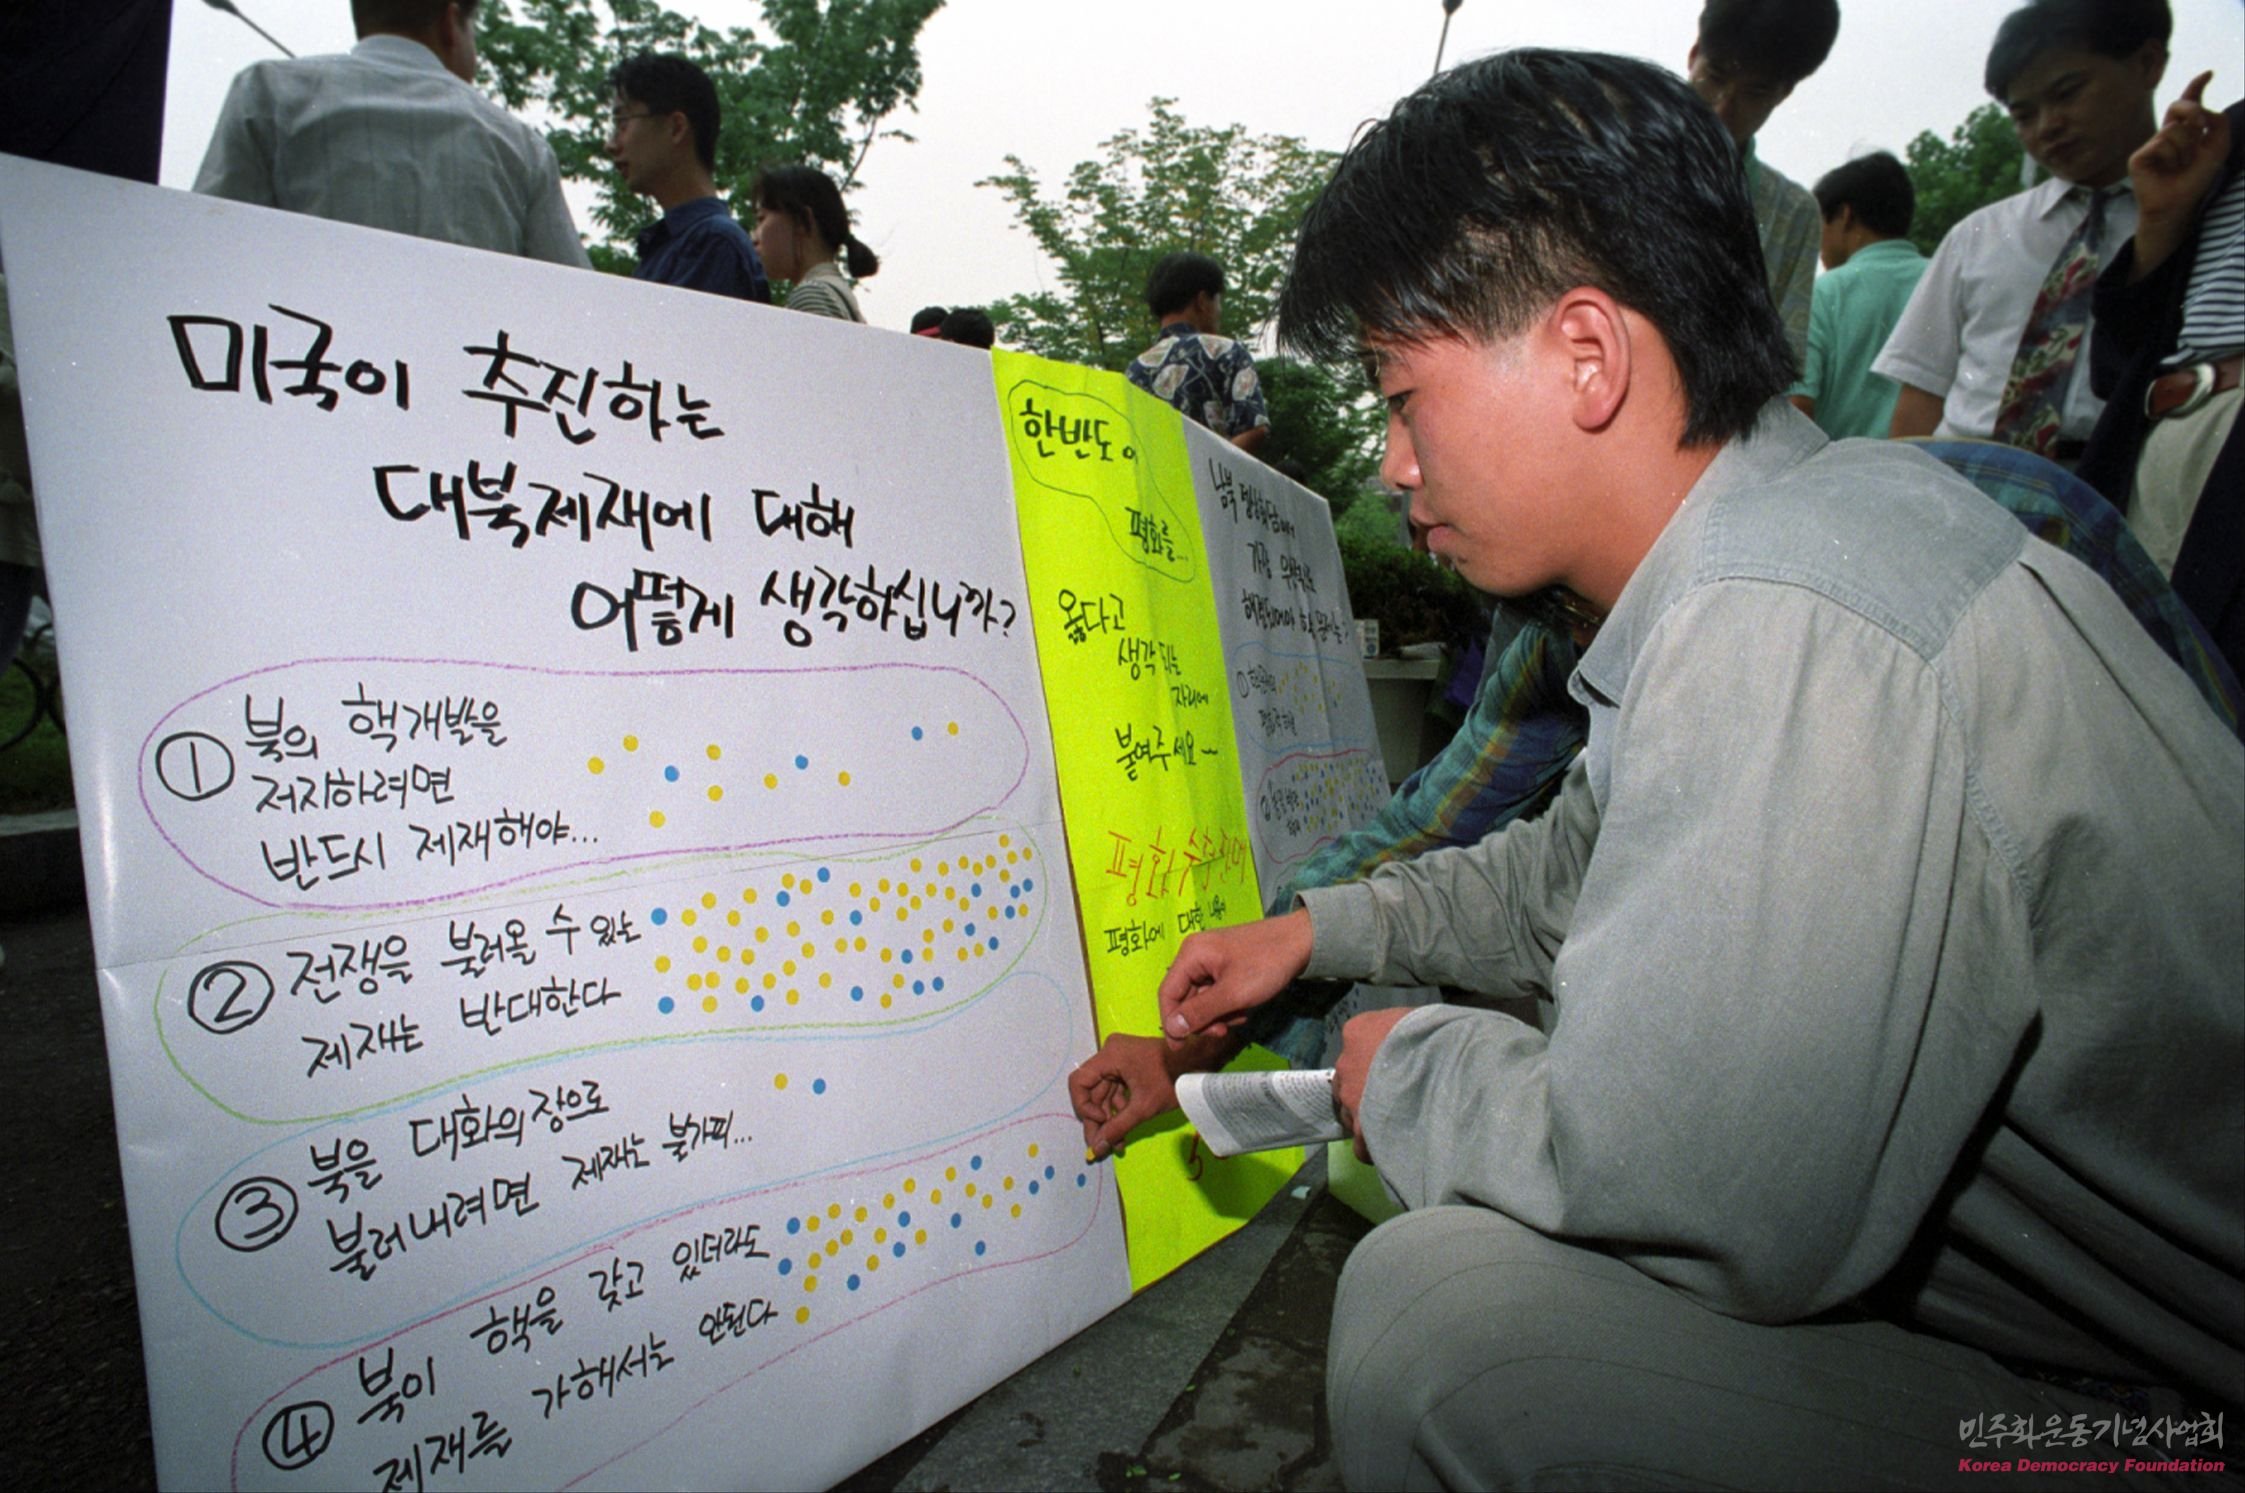 미국이 추진하는
대북제재에 대해
어떻게 생각하십니까?
① 북의 핵개발을
저지하려면
반드시 제재해야...
② 전쟁을 불러올 수 있는
제재는 반대한다
③ 북을 대화의 장으로
불러내려면 제재는 불가피...
④ 북이 핵을 갖고 있더라도
제재를 가해서는 안된다
한반도에
평화를...
옳다고
생각되는
자리에
붙여주세요~
평화
평화에 대한
남북 정상회담에서
가장 우선적으로
해결되어야 할 문제는?
①
민주화운동기념사업회
Korea Democracy Foundation